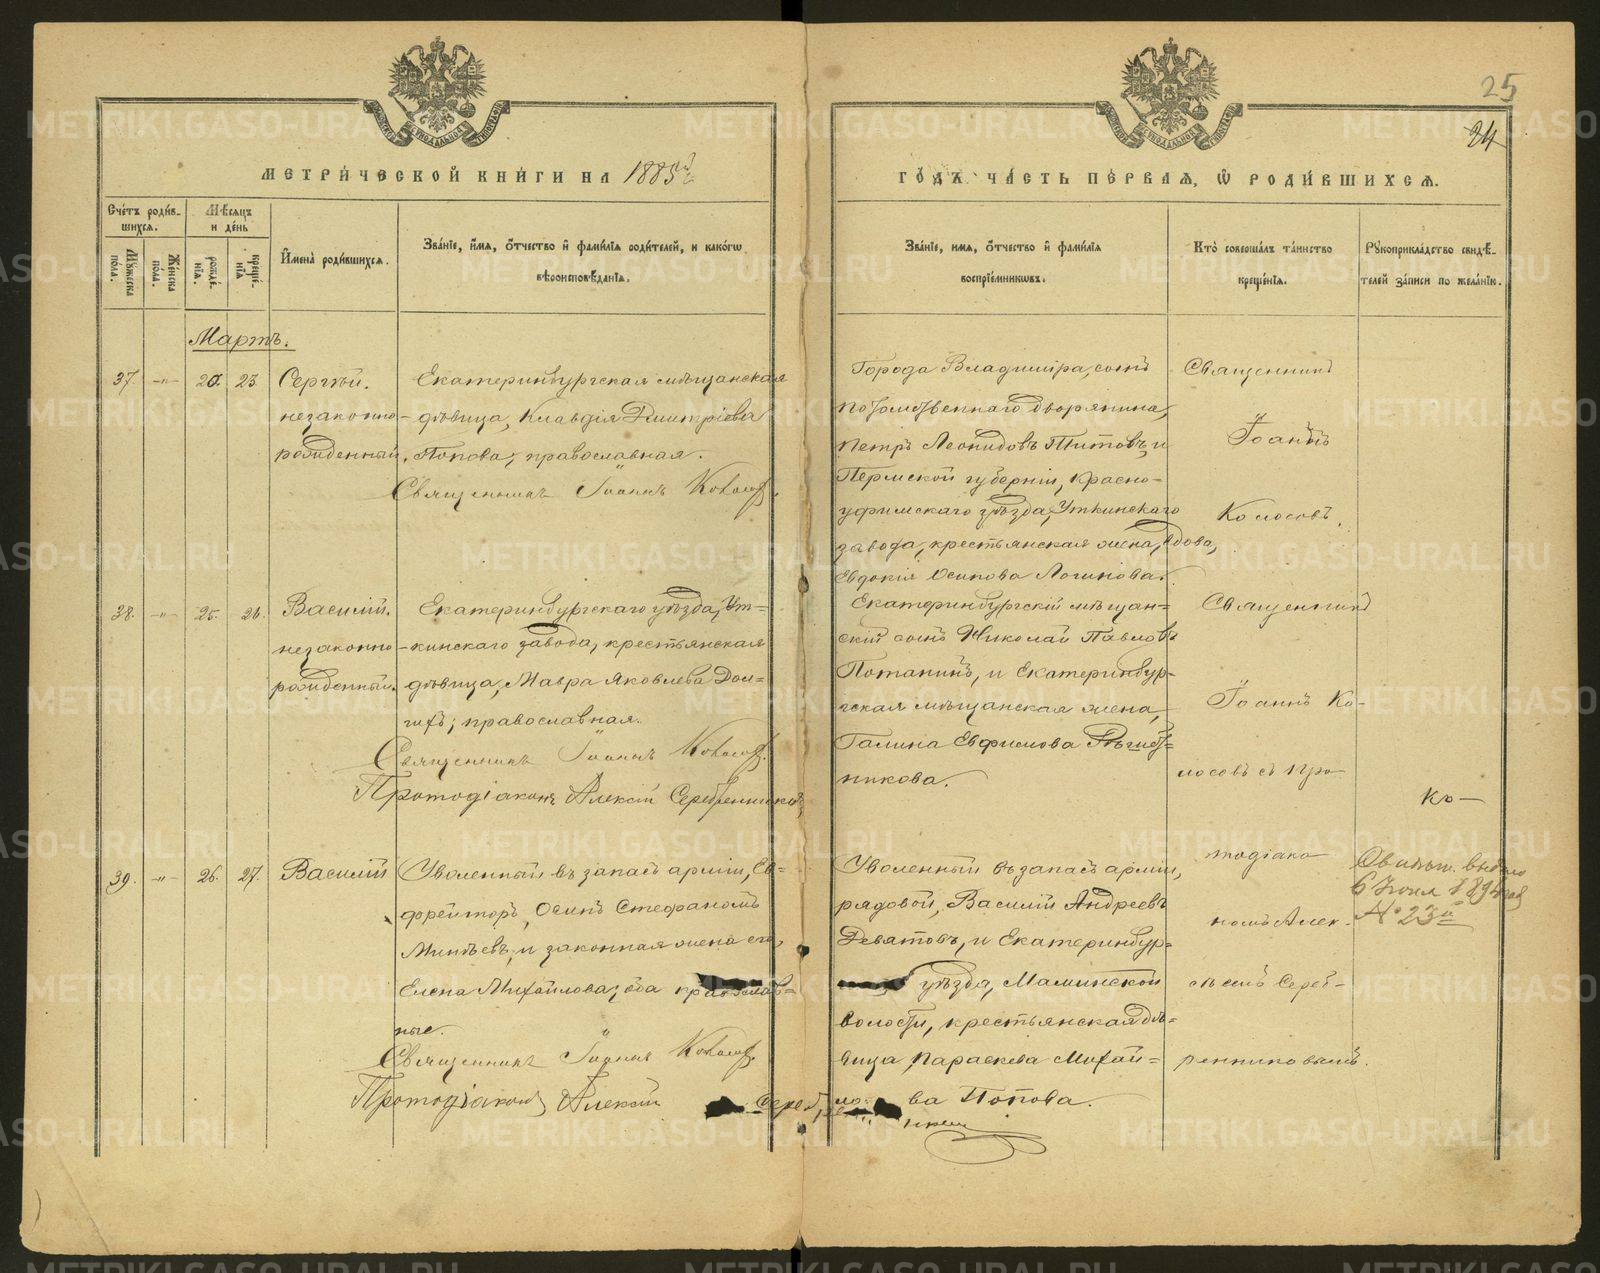 25
24
МЕТРИ́ЧЕСКОЙ КНИ́ГИ НА 1885й
ГО́ДЪ ЧА́СТЬ ПЕ́РВАЯ, Ѡ РОДИ́ВШИХСЯ.
Сче́тъ роди́в-
шихся.
Мѣ́сяцъ
и де́нь
Му́жеска
по́ла.
Же́нска
по́ла.
рожде́-
нїя.
креще́-
нїя.
И́мена роди́вшихся.
Зва́нїе, и́мя, о́тчество и фами́лїя роди́телей, и како́гѡ
вѣроисповѣ́данїя.
Зва́нїе, имя, о́тчество и фами́лїя
воспрїе́мникѡвъ.
Кто̀ соверша́лъ та́инство
креще́нїя.
Рꙋкоприкла́дство свидѣ́-
телей за́писи по жела́нїю.
Мартъ.
37. -"- 20. 23. Сергѣй.
незаконно-
рожденный.
Екатеринбургская мѣщанская
дѣвица, Клавдія Дмитріева
Попова, православная.
Священникъ Іоаннъ Колосов.
Города Владиміра, сынъ
потомственнаго дворянина,
Петръ Леонидовъ Титовъ, и
Пермской губерніи, Красно-
уфимскаго уѣзда, Уткинскаго
завода, крестьянская жена, вдова,
Евдокія Осипова Логинова.
Священникъ
Іоаннъ
Колосовъ.
38. -"- 25. 26. Василій.
незаконно-
рожденный.
Екатеринбургскаго уѣзда, Ут-
кинскаго завода, крестьянская
дѣвица, Мавра Яковлева Дол-
гихъ; православная.
Священникъ Іоаннъ Колосов.
Протодіаконъ Алексій Серебренниковъ
Екатеринбургскій мѣщан-
скій сынъ Николай Павловъ
Потанинъ, и Екатеринбур-
гская мѣщанская жена,
Галина Евфимова
никова.
Священникъ
Іоаннъ Ко-
лосовъ съ Про-
39. -"- 26. 27. Василій
Уволенный въ запасъ арміи, Еф-
фрейторъ, Осипъ Стефановъ
Минѣевъ, и законная жена его,
Елена Михайлова; оба православ-
ные.
Священникъ Іоаннъ Колосов.
Протодіаконъ Алексій Сереб
Уволенный въ запасъ арміи,
рядовой, Василій Андреевъ
Деватовъ, и Екатеринбур-
уѣзда, Маминской
волости, крестьянская дѣ-
вица, Параскева Михай-
ло- ва Попова.
тодіако-
номъ Алек-
сѣемъ Сереб-
ренниковымъ.
Свидѣт. выдано
6 Іюня 1894 года
№ 23й